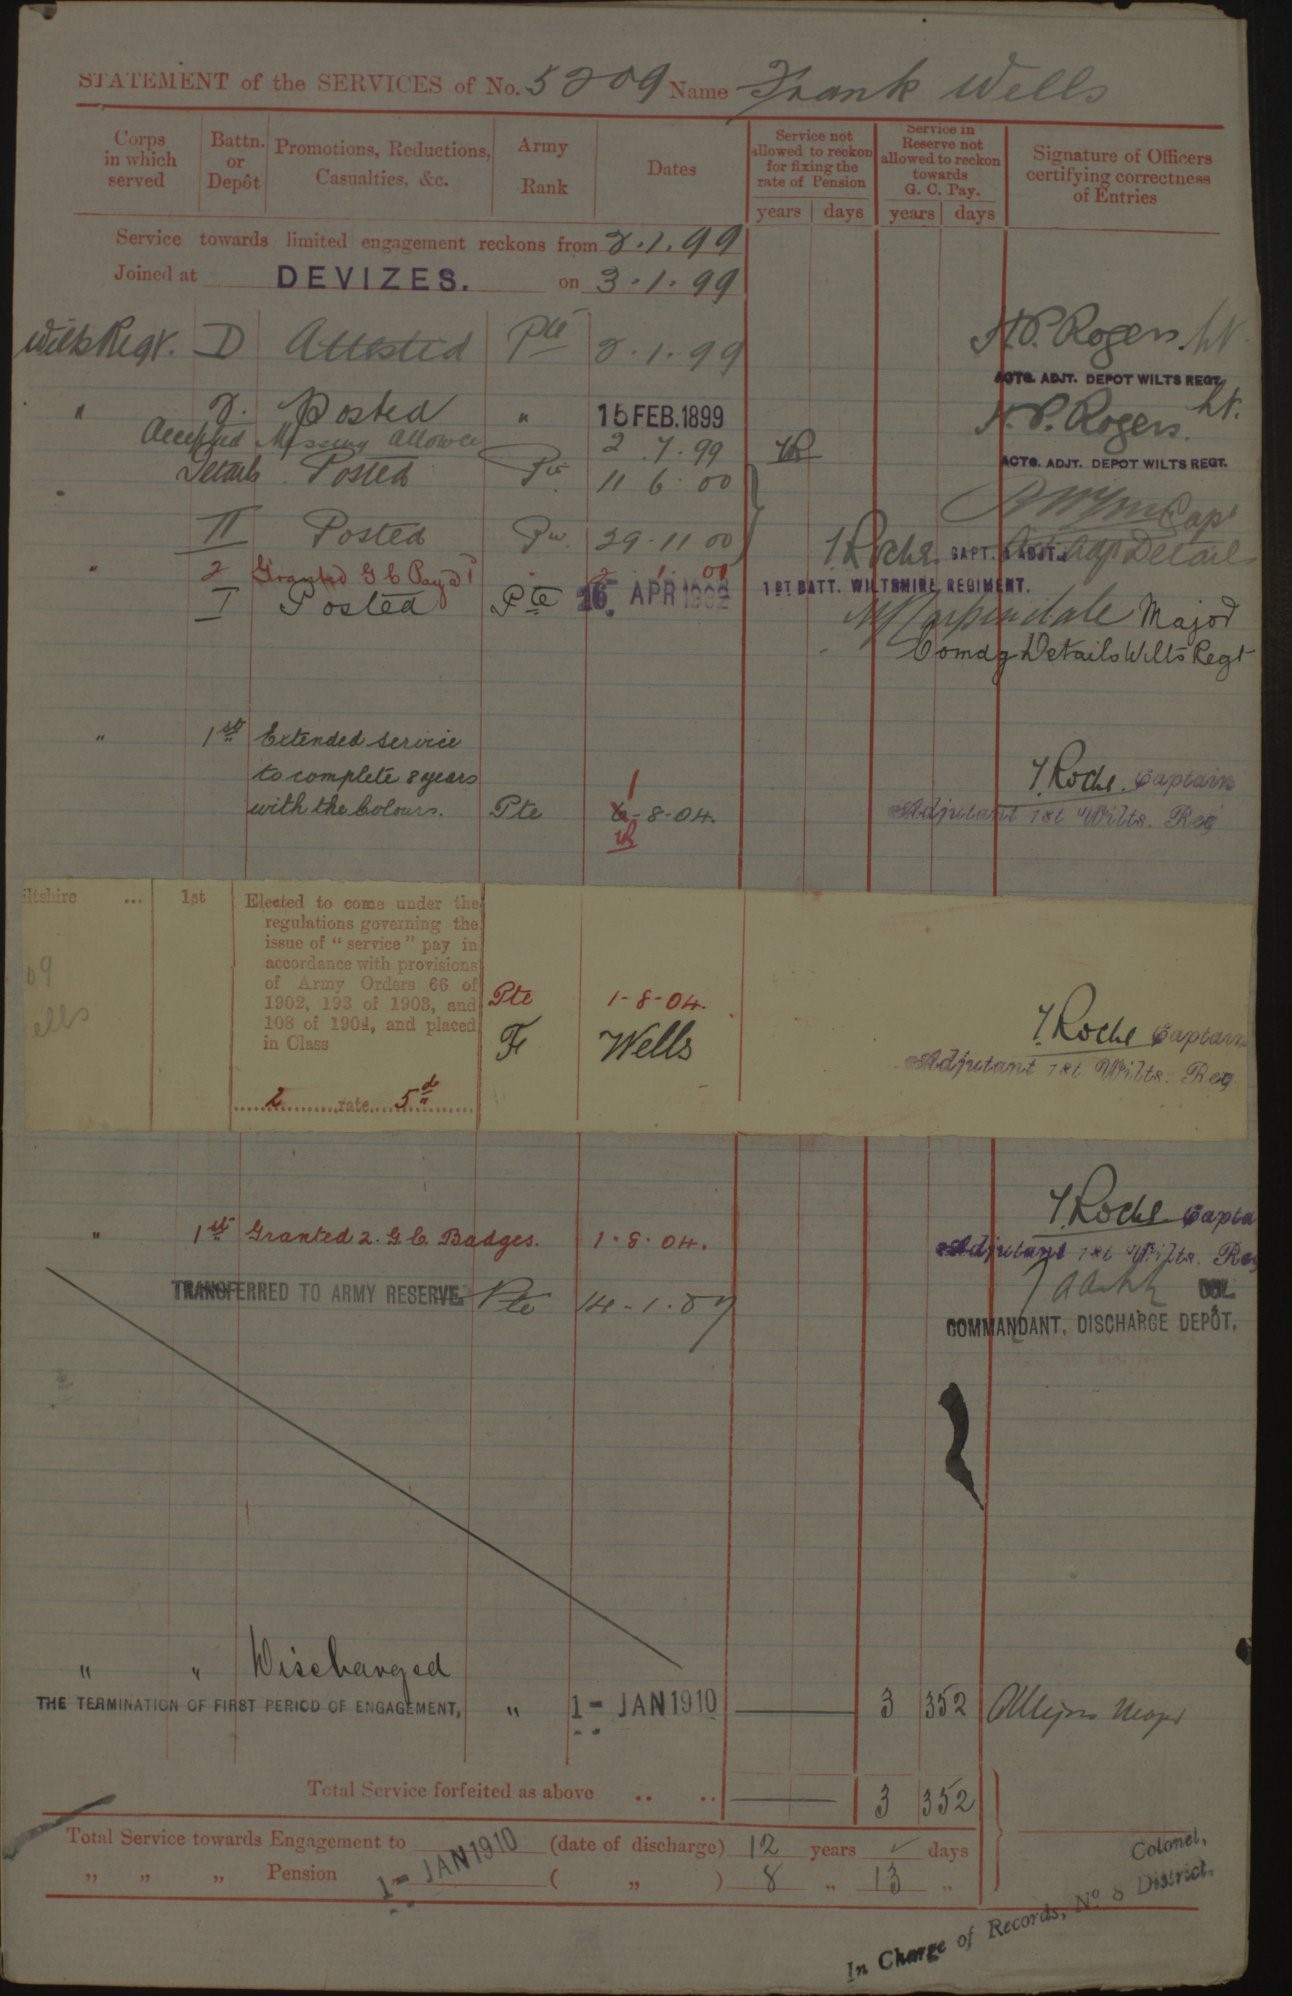 STATEMENT of the SERVICES of No. 5209 Name Frank Wells
Corps in which served
Battn. or Depôt
Promotions, Reductions, Casualties, &c.
Army Rank
Dates
Service not allowed to reckon for fixing the rate of Pension
years days
Service in Reserve not allowed to reckon towards G. C. Pay.
years days
Signature of Officers certifying correctness of Entries
Service towards limited engagement reckons from 2.1.99
Joined at DEVIZES. on 3.1.99
Wilts Regt. D Attested Pte 2.1.99 H.P. Rogers. Lt.
ACTG. ADJT. DEPOT WILTS REGT.
" 2. Posted " 15 FEB. 1899 H.P. Rogers. Lt.
Accepted Messing Allowce 2.7.99 TR
ACTG. ADJT. DEPOT WILTS REGT.
Details Posted Pte 11 6 00
Capt
II Posted Pte 29-11 00 T. Roche. CAPT. & ADJT.
Details
" 2 Granted G C Pay 2 1 01
1ST BATT. WILTSHIRE REGIMENT.
I Posted Pte 16 APR 1902
Major
Comdg Details Wilts Regt
" 1st Extended service
to complete 8 years
with the Colours. Pte 6-8-04. 1 TR
T. Roche. Captain
Adjutant 1st Wilts. Reg
iltshire ... 1st
Elected to come under the
regulations governing the
issue of "service" pay in
accordance with provisions
of Army Orders 66 of
1902, 193 of 1903, and
108 of 1904, and placed
in Class
2 rate 5d
09
ells
Pte 1-8-04.
F Wells
T. Roche Captain
Adjutant 1st Wilts. Reg
" 1st Granted 2. G.C. Badges. 1.8.04.
T. Roche Capta
Adjutant 1st Wilts. Reg
TRANSFERRED TO ARMY RESERVE. Pte 14-1-07
COL.
COMMANDANT, DISCHARGE DEPÔT.
" " Discharged
THE TERMINATION OF FIRST PERIOD OF ENGAGEMENT, " 1- JAN 1910 3 352 Major
Total Service forfeited as above .. .. 3 352
Total Service towards Engagement to 1- JAN 1910 (date of discharge) 12 years ✓ days
" " " Pension ( " ) 8 " 13 "
Colonel,
In Charge of Records, No 8 District.